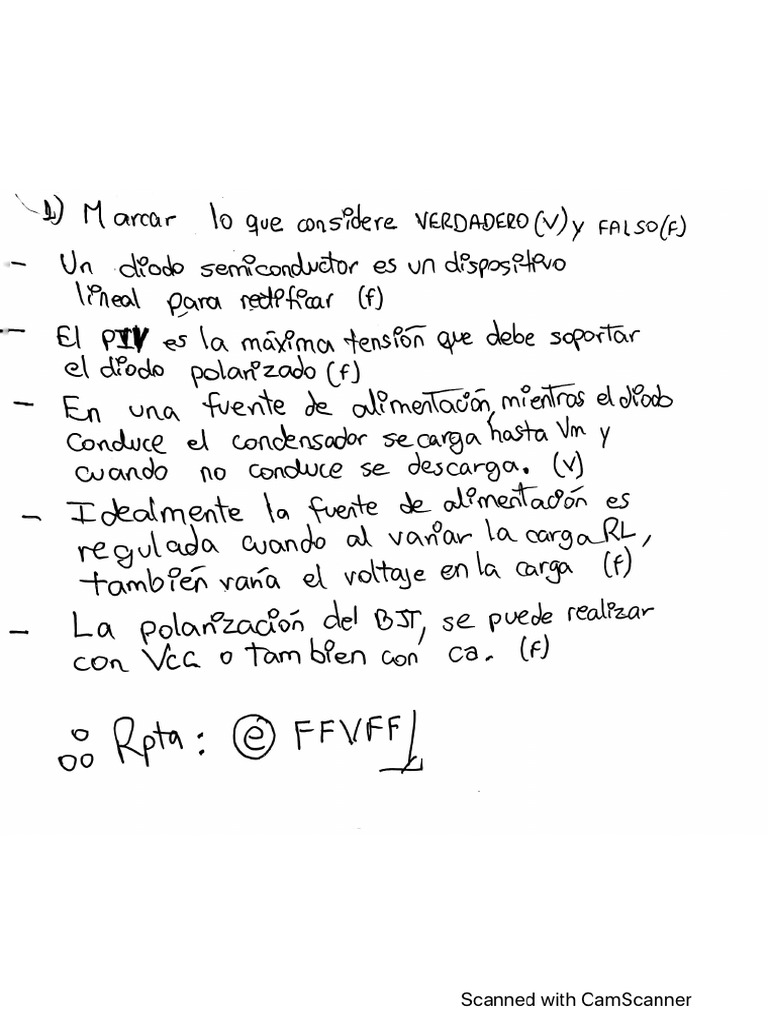 1) Marcar lo que considere VERDADERO(V) y FALSO(F)
- Un diodo semiconductor es un dispositivo
lineal para rectificar (f)
- El PIV es la máxima tensión que debe soportar
el diodo polarizado (f)
- En una fuente de alimentación, mientras el diodo
conduce el condensador se carga hasta Vm y
cuando no conduce se descarga. (v)
- Idealmente la fuente de alimentación es
regulada cuando al variar la carga RL,
también varía el voltaje en la carga (f)
- La polarización del BJT, se puede realizar
con Vcc o tambien con ca. (f)
∴ Rpta: ⓔ FFVFF
Scanned with CamScanner